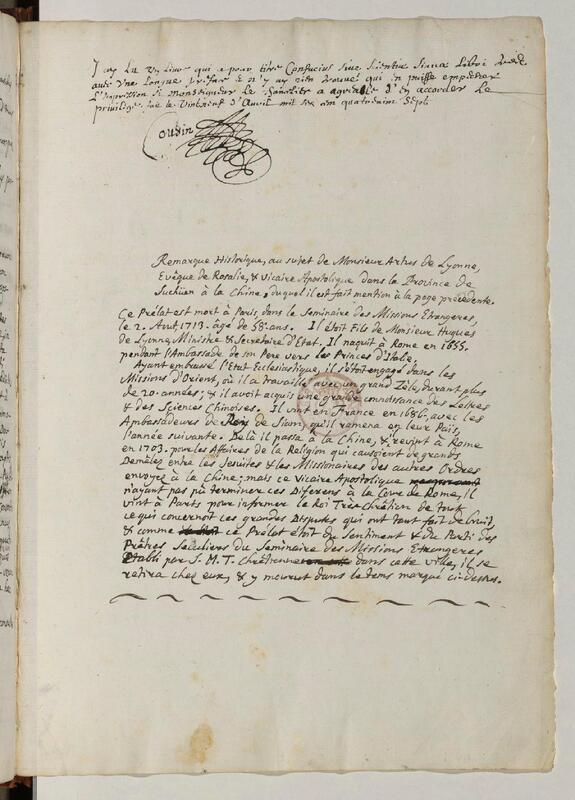 J'ay lu un livre qui a pour titre Confucius sive Scientia Sinica Libri
avec une longue preface & n'y ay rien trouvé qui en puisse empescher
L'impression si monseigneur le Chancelier a agreable d'en accorder le
privilege fait le Vintneuf d'Avril mil six cen quatrevins sept.
Cousin
Remarque Historique, au sujet de Monsieur Artus de Lyonne,
Evêque de Rosalie, & Vicaire Apostolique dans la Province de
Suchüen à la Chine, duquel il est fait mention à la page précedente.
Ce Prélat est mort à Paris, dans le Seminaire des Missions Etrangeres,
le 2. Aout, 1713. âgé de 58. ans. Il étoit Fils de Monsieur Hugues
de Lyonne, Ministre & Secretaire d'Etat. Il naquit à Rome en 1655.
pendant l'Ambassade de son Pere vers les Princes d'Italie.
Ayant embrassé l'Etat Ecclesiastique, il s'étoit engagé dans les
Missions d'Orient, où il a travaillé avec un grand Zèle, durant plus
de 20. années; & il avoit acquis une grande connoissance des Lettres
& des Sciences Chinoises. Il vint en France en 1686. avec les
Ambassadeurs de Roy de Siam, qu'il ramena en leur Païs,
l'année suivante. Delà il passa à la Chine, & revint à Rome
en 1703. pour les Affaires de la Religion qui causoient de grands
Demêlez entre les Jesuites & les Missionaires des autres Ordres
envoyez à la Chine; mais ce Vicaire Apostolique
n'ayant pas pû terminer ces Diferens à la Cour de Rome, il
vint à Paris pour informer le Roi Tres-Chrêtien de tout
ce qui concernoit ces grandes Disputes qui ont tant fait de bruit,
& comme ce Prélat étoit du Sentiment & du Parti des
Prêtres Séculiers du Seminaire des Missions Etrangeres
Etabli par S. M. T. Chrêtienne dans cette ville, il se
retira chez eux, & y mourut dans le tems marqué ci-dessus.